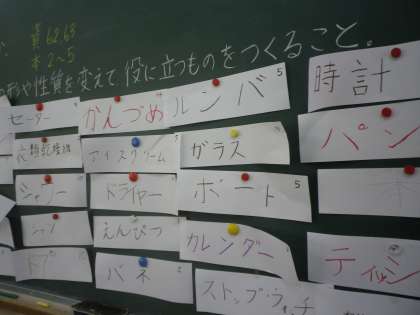 資62.63
本2〜5
形や性質を変えて役に立つものをつくること。
セーター
かんづめ
ルンバ 5
時計
アイスクリーム
ガラス
パン
シャワー
ドライヤー
ボート 5
えんぴつ
カレンダー
ティッシ
バネ
ストップウォッチ